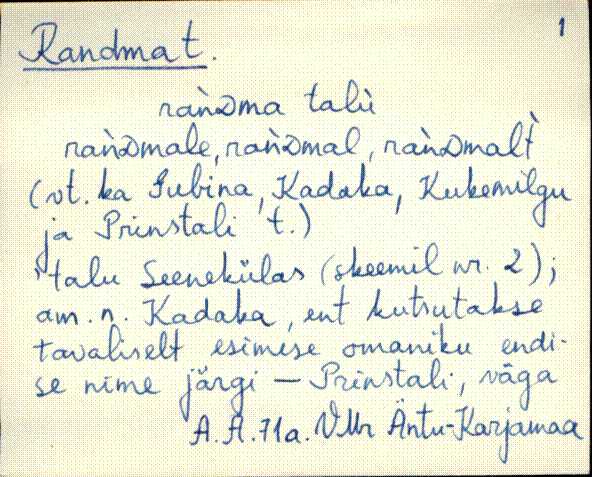 1
Randma t.
ràǹDma talù
ràǹDmale, ràǹDmal, ràǹDmal̀t
(vt. ka Gubina, Kadaka, Kukemilgu
ja Prinstali t.)
talu Seenekülas (skeemil nr. 2);
am. n. Kadaka, ent kutsutakse
tavaliselt esimese omaniku endi-
se nime järgi — Prinstali, väga
A. A. 71a. VMr Äntu-Karjamaa